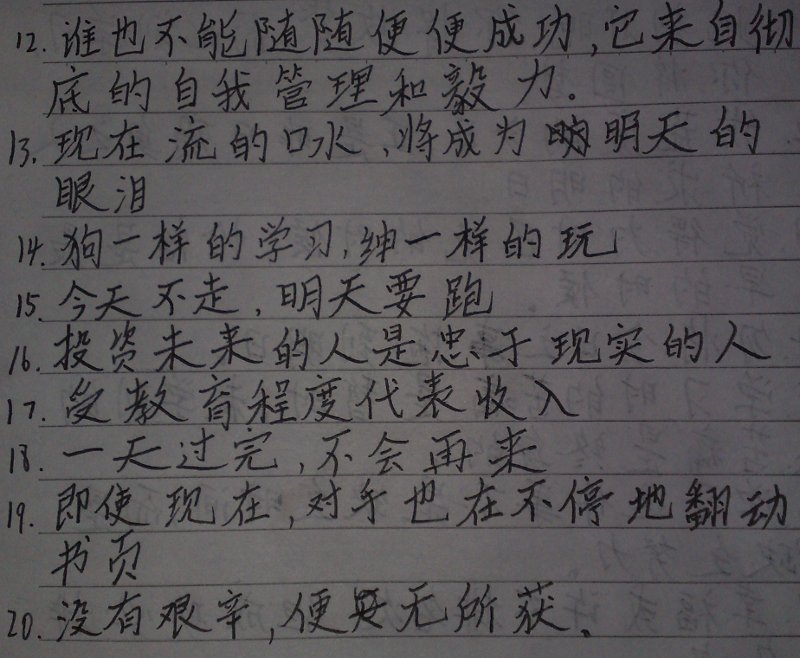 12. 谁也不能随随便便成功,它来自彻
底的自我管理和毅力。
13. 现在流的口水,将成为明天的
眼泪
14. 狗一样的学习,绅一样的玩
15. 今天不走,明天要跑
16. 投资未来的人是忠于现实的人
17. 受教育程度代表收入
18. 一天过完,不会再来
19. 即使现在,对手也在不停地翻动
书页
20. 没有艰辛,便无所获。